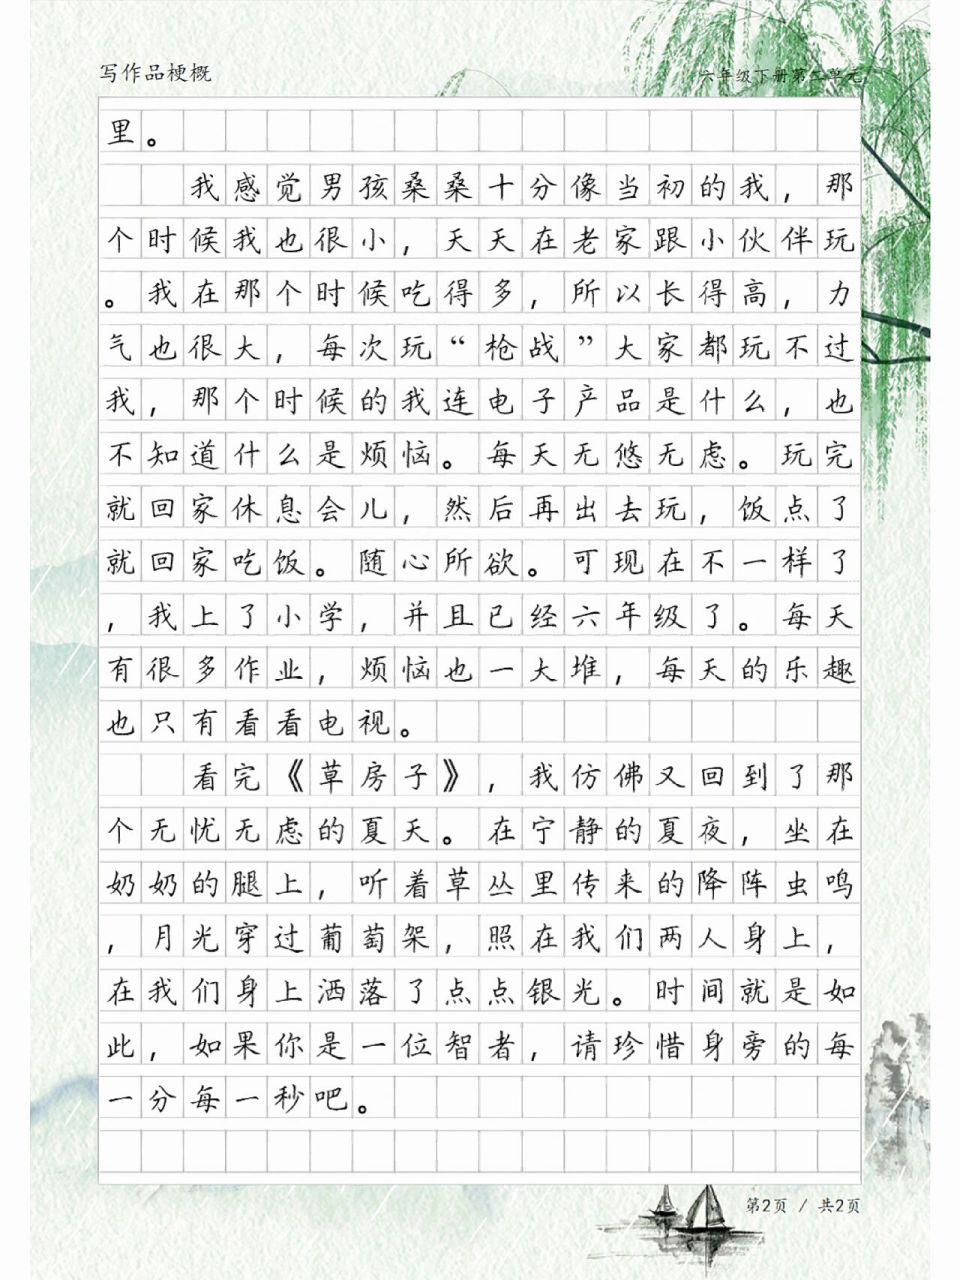 写作品梗概
六年级下册第二单元
里。
我感觉男孩桑桑十分像当初的我，那
个时候我也很小，天天在老家跟小伙伴玩
。我在那个时候吃得多，所以长得高，力
气也很大，每次玩“枪战”大家都玩不过
我，那个时候的我连电子产品是什么，也
不知道什么是烦恼。每天无悠无虑。玩完
就回家休息会儿，然后再出去玩，饭点了
就回家吃饭。随心所欲。可现在不一样了
，我上了小学，并且已经六年级了。每天
有很多作业，烦恼也一大堆，每天的乐趣
也只有看看电视。
看完《草房子》，我仿佛又回到了那
个无忧无虑的夏天。在宁静的夏夜，坐在
奶奶的腿上，听着草丛里传来的降阵虫鸣
，月光穿过葡萄架，照在我们两人身上，
在我们身上洒落了点点银光。时间就是如
此，如果你是一位智者，请珍惜身旁的每
一分每一秒吧。
第2页 / 共2页